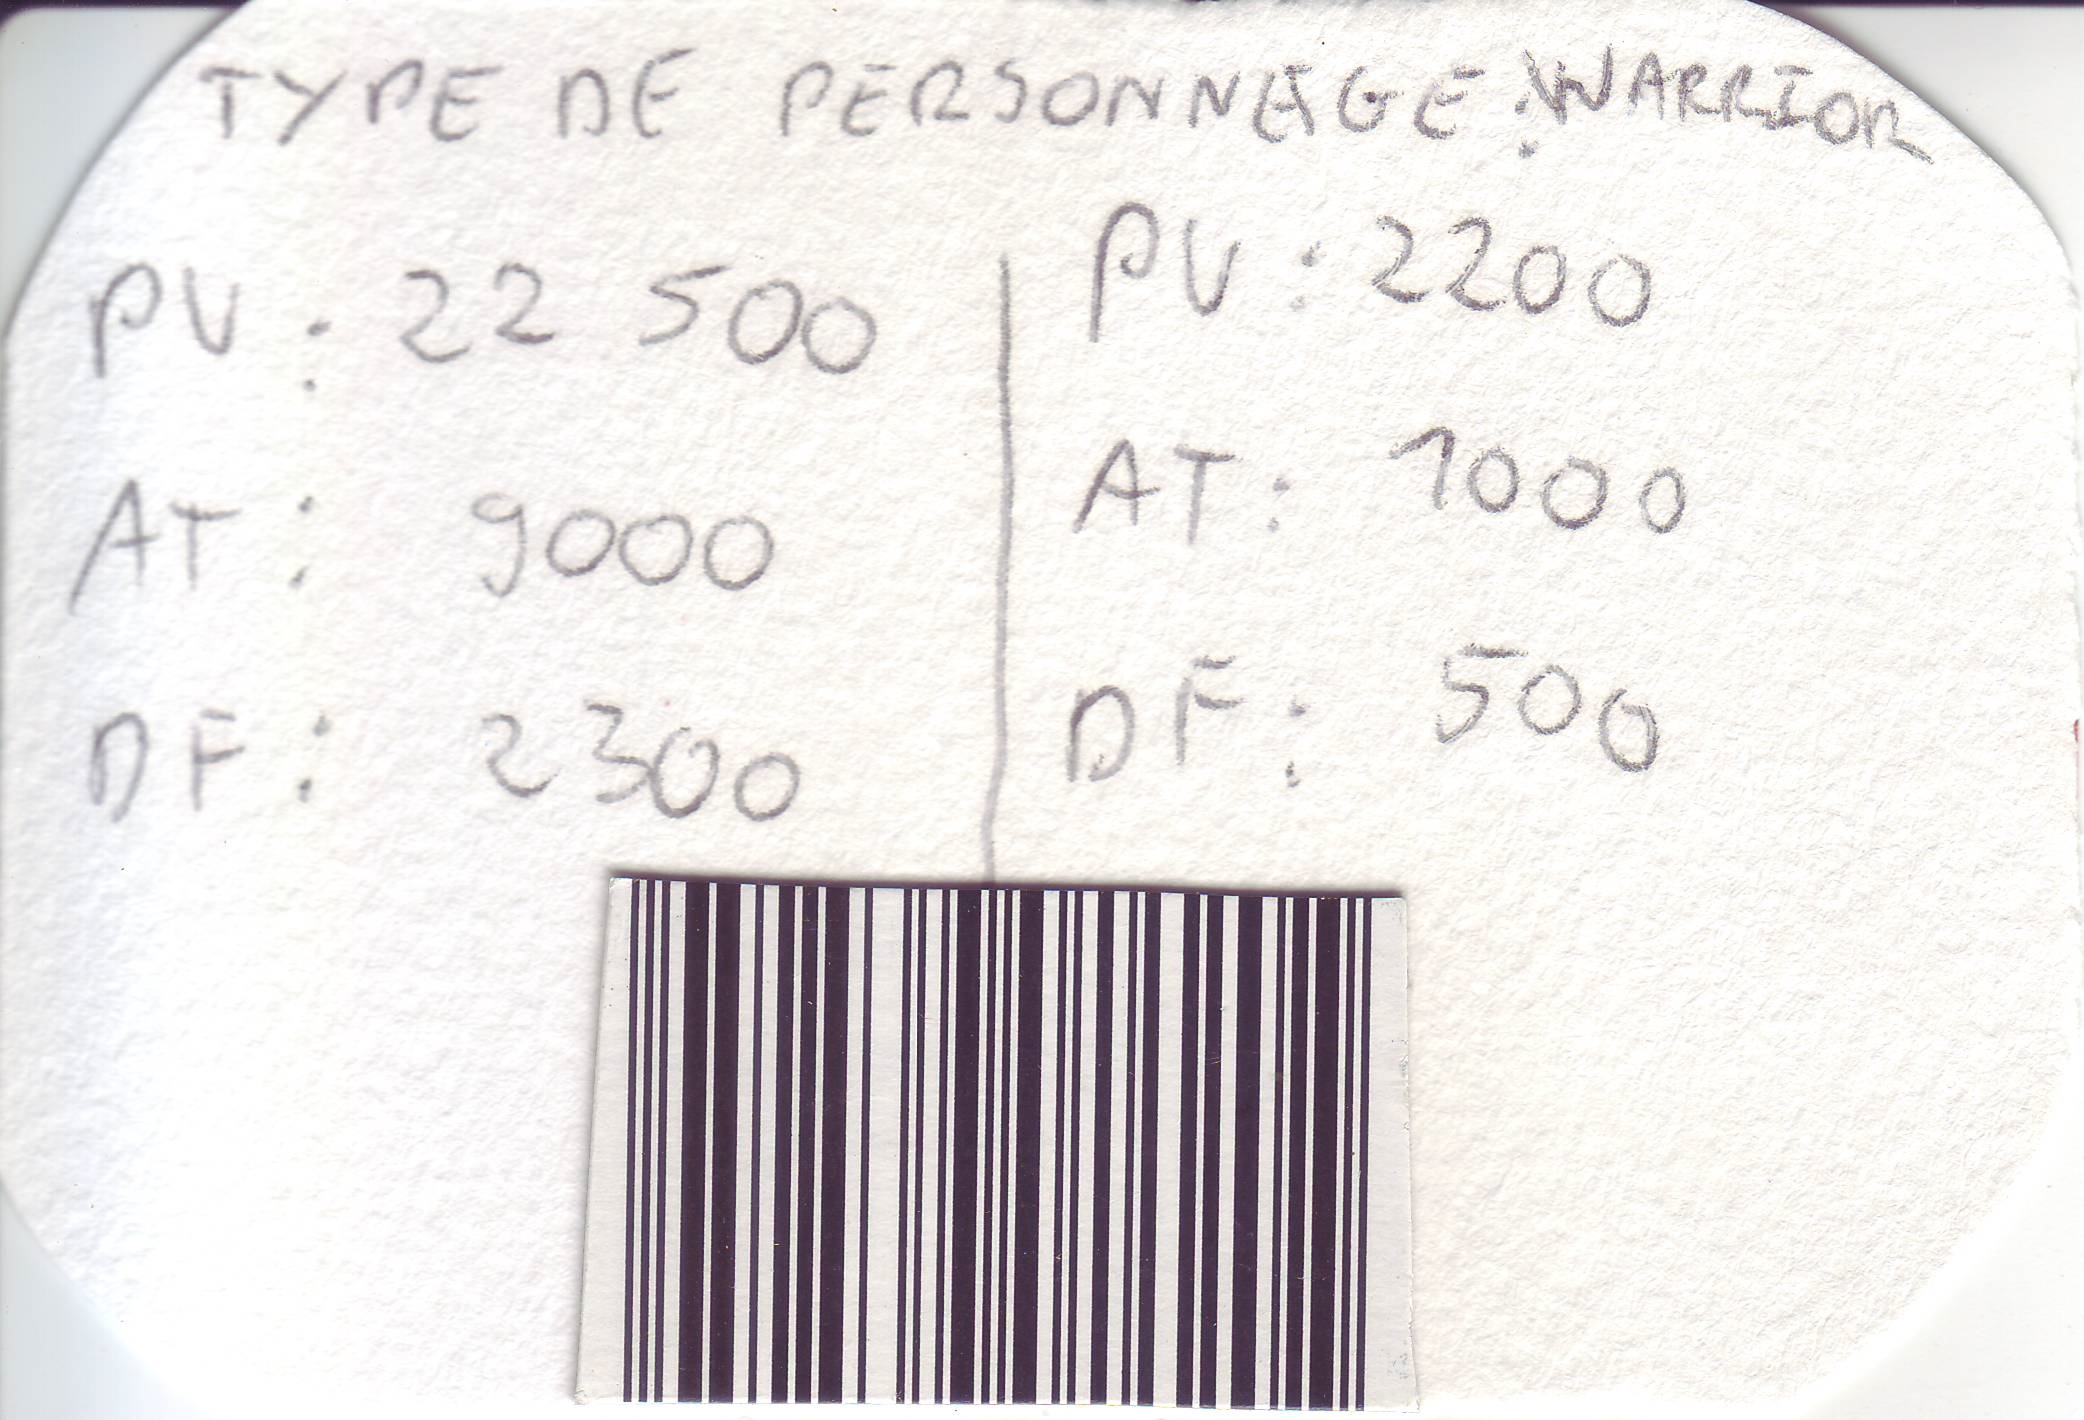 TYPE DE PERSONNAGE : WARRIOR
PV : 22 500
AT : 9000
DF : 2300
PV : 2200
AT : 1000
DF : 500